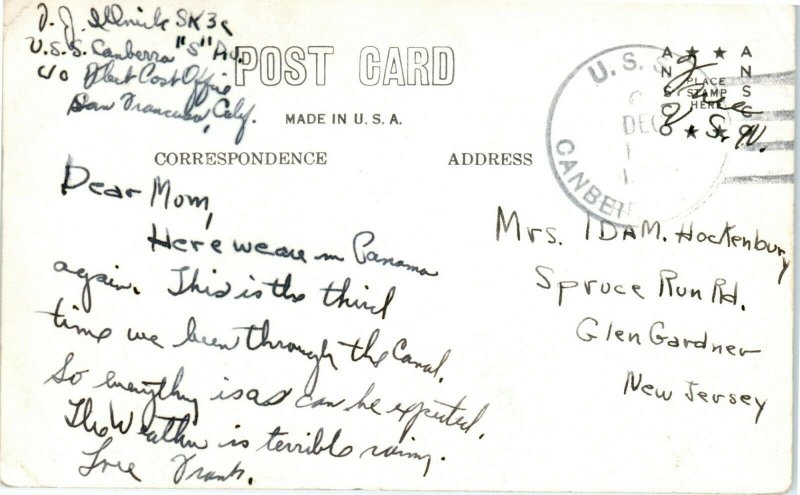 U.S.S. Canberra "S" Div.
c/o Fleet Post Office
San Francisco, Calif.
POST CARD
MADE IN U.S.A.
CORRESPONDENCE
ADDRESS
U.S.S.
DEC
CANBER
ANSCO
PLACE
STAMP
HERE
ANSCO
Free
U.S.N.
Dear Mom,
Here we are in Panama
again. This is the third
time we been through the Canal.
So everything is as can be expected.
The Weather is terrible rainy.
Love Frank.
Mrs. IDA M. Hockenbury
Spruce Run Rd.
Glen Gardner
New Jersey